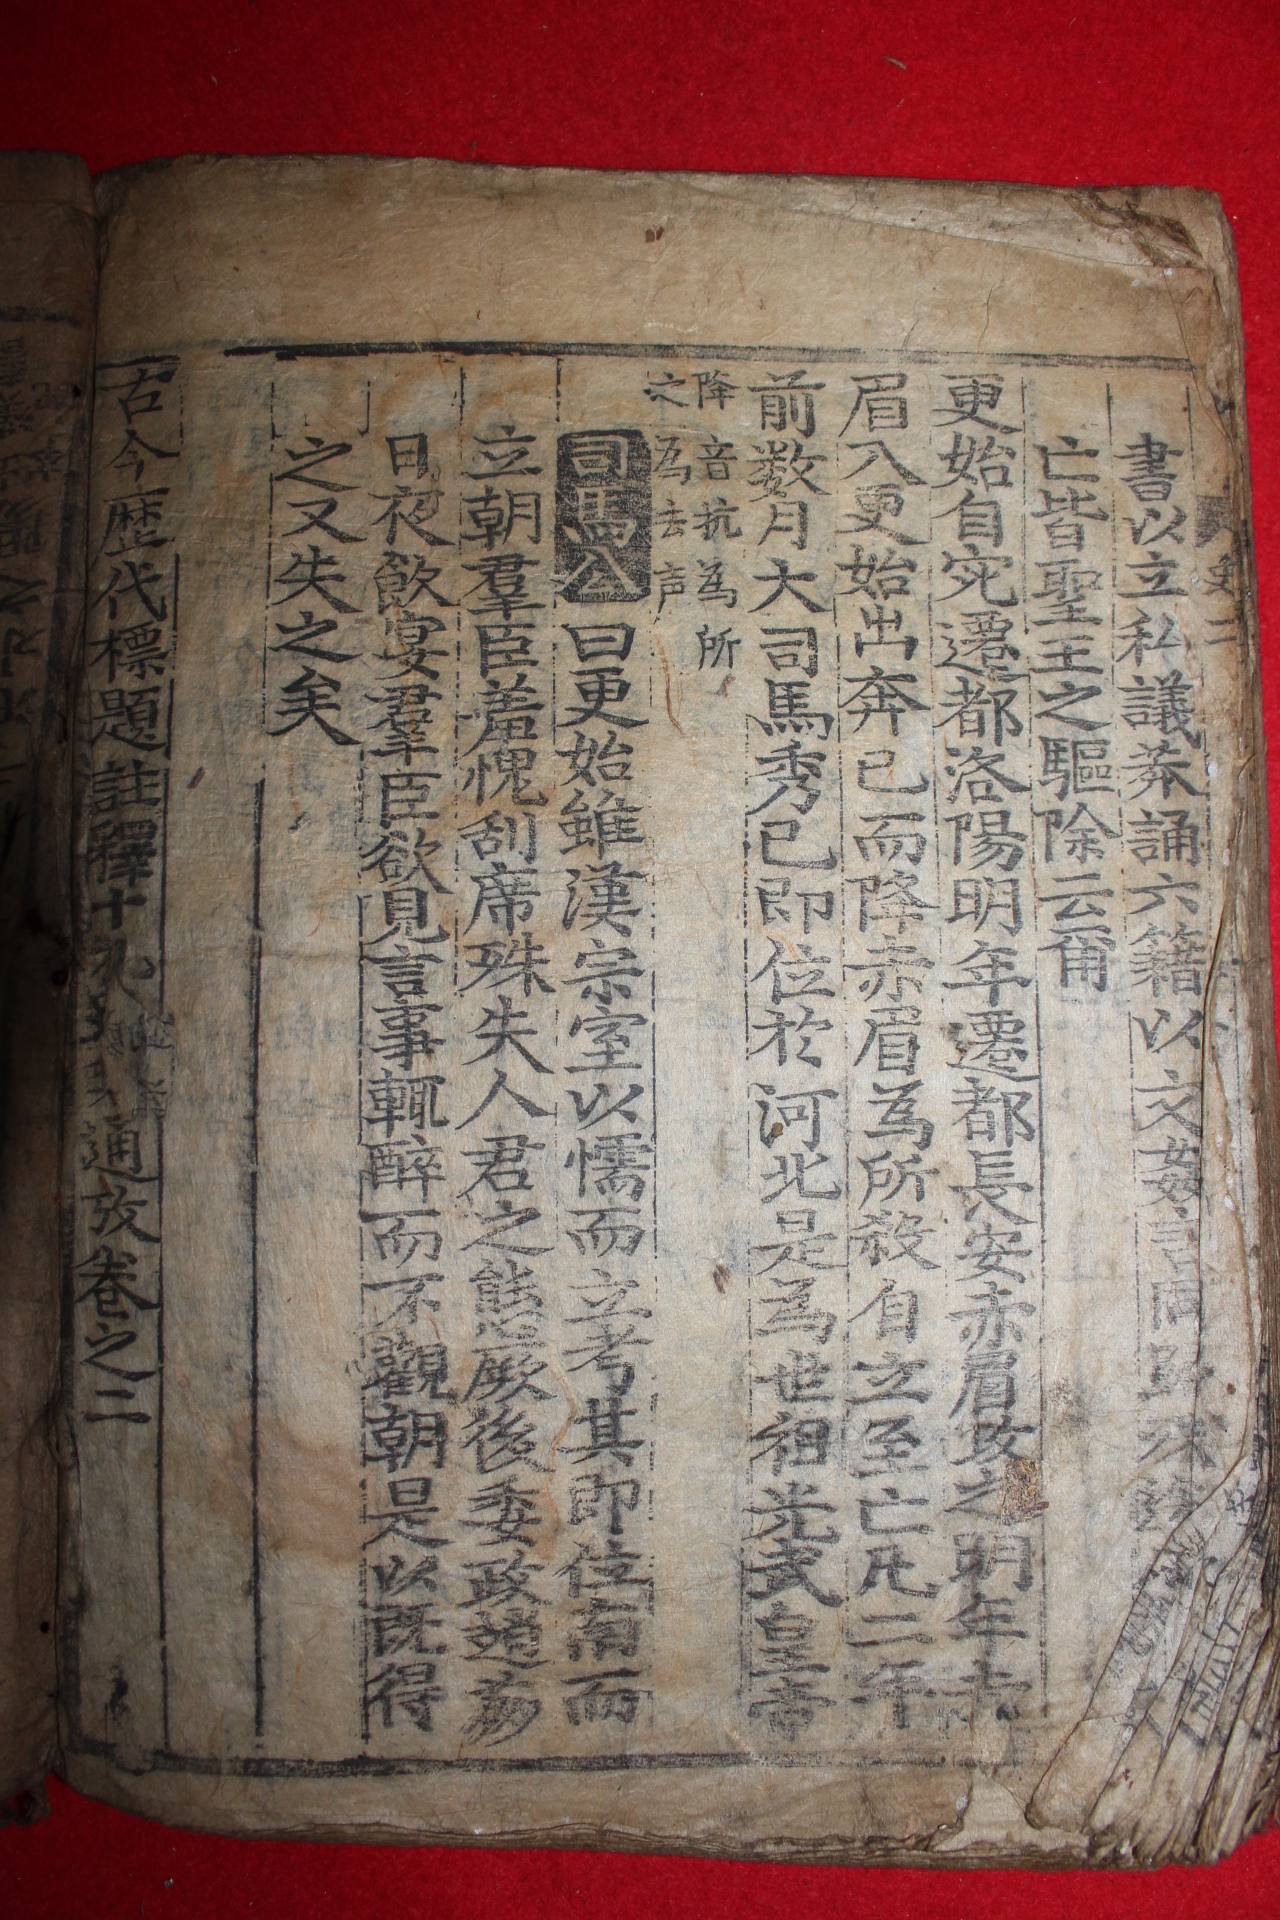 書以立私議莽誦六籍以文姦言同
亡皆聖王之驅除云甬
更始自宛遷都洛陽明年遷都長安赤眉攻之明年赤
眉入更始出奔已而降赤眉爲所殺自立至亡凡二年
前数月大司馬秀已即位於河北是爲世祖光武皇帝
降音抗為所
之為去声
司馬公曰更始雖漢宗室以懦而立考其即位南面
立朝羣臣羞愧刮席殊失人君之態厥後委政趙萠
日夜飮宴羣臣欲見言事輒醉而不觀朝是以旣得
之又失之矣
古今歷代標題註釋十九史通攷卷之二
史二